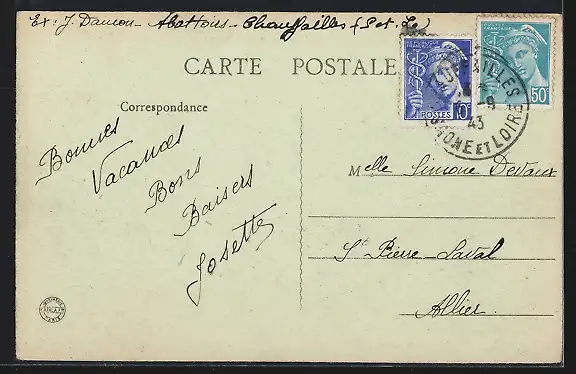 Ex: J Damon - Abattoirs - Chauffailles (S et Le)
CARTE POSTALE
Correspondance
Bonnes
Vacances
Bons
Baisers
Josette
POSTES
10c
50c
43
SAONE ET LOIRE
Melle Simone Devaux
St Pierre-Laval
Allier.